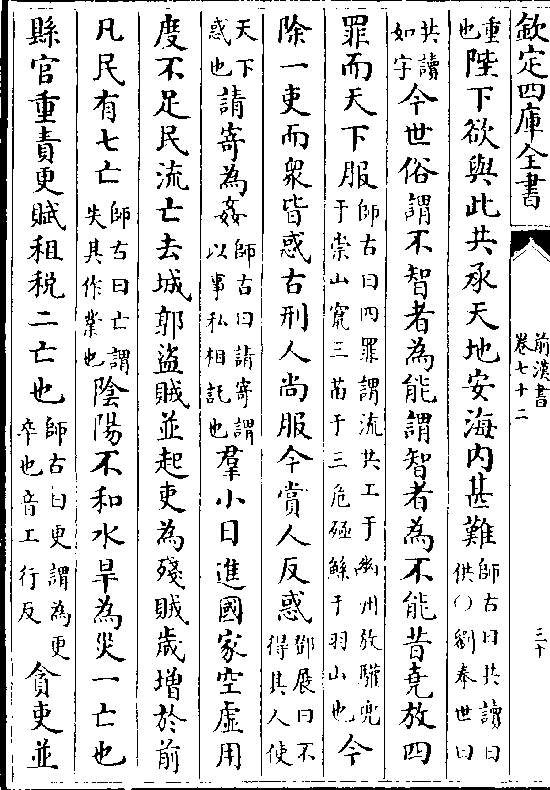 欽定四庫全書
前漢書
卷七十二
三十
重也陛下欲與此共承天地安海内甚難師古曰共讀曰供〇劉奉世曰
共讀如字今世俗謂不智者為能謂智者為不能昔堯放四
罪而天下服師古曰四罪謂流共工于幽州放驩兜于崇山竄三苗于三危殛鯀于羽山也今
除一吏而衆皆惑古刑人尚服今賞人反惑鄧展曰不得其人使
天下惑也請寄為姦師古曰請寄謂以事私相託也羣小日進國家空虚用
度不足民流亡去城郭盜賊並起吏為殘賊歲增於前
凡民有七亡師古曰亡謂失其作業也陰陽不和水旱為災一亡也
縣官重責更賦租税二亡也師古曰更謂為更卒也音工行反貪吏並